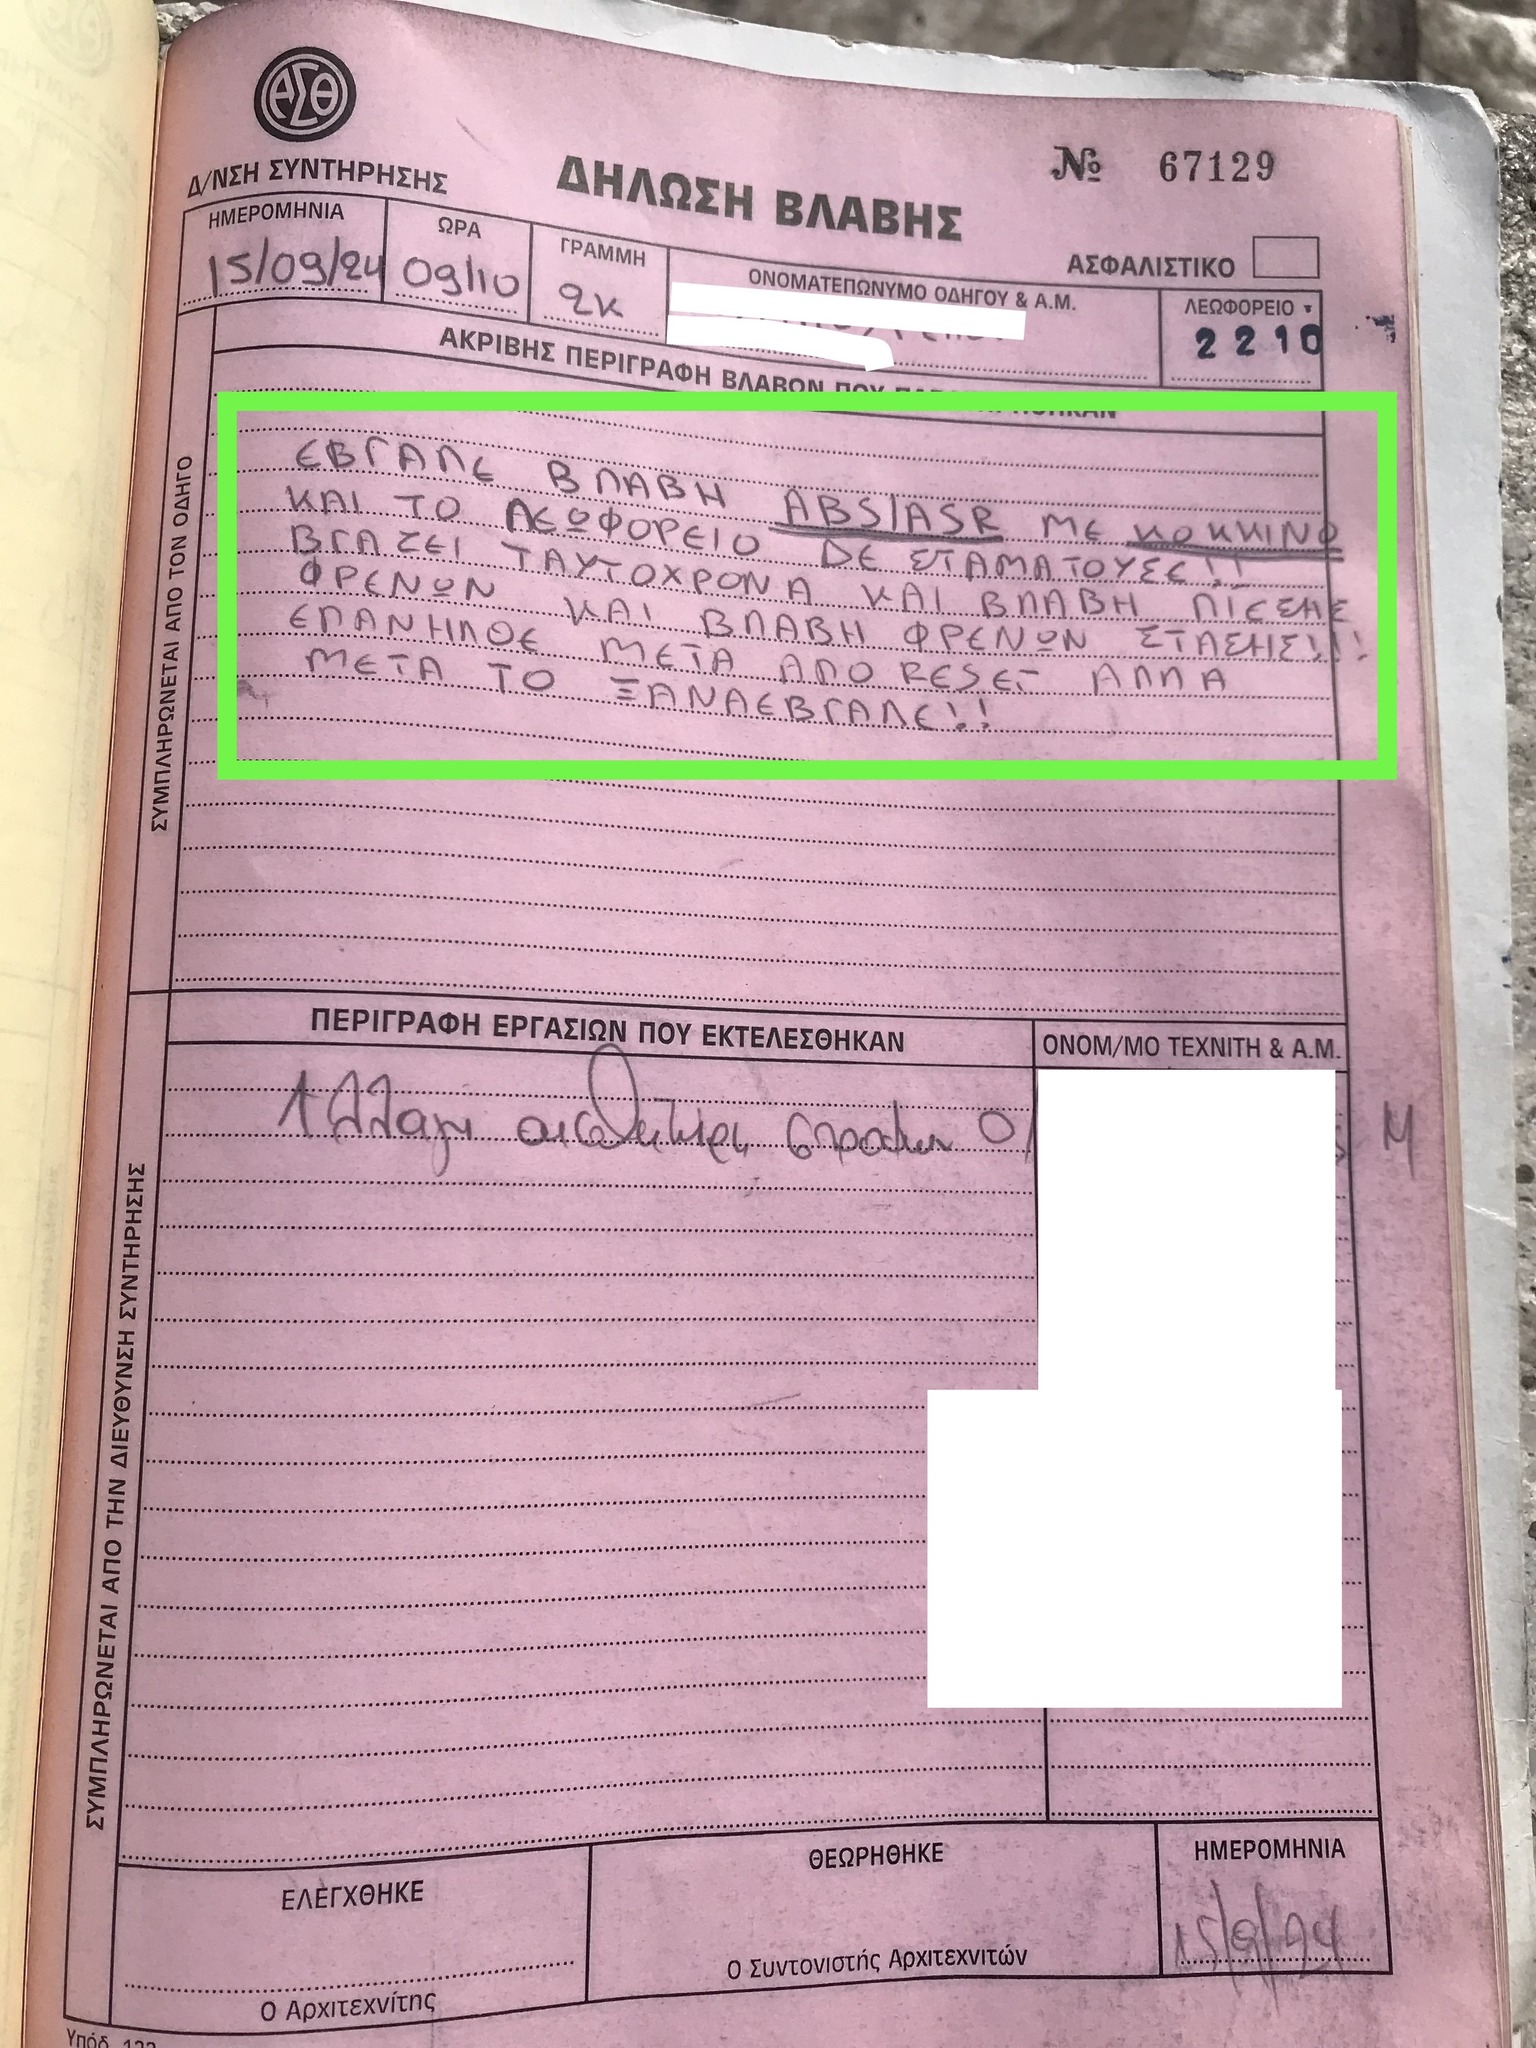 ΑΣΘ
Δ/ΝΣΗ ΣΥΝΤΗΡΗΣΗΣ
ΔΗΛΩΣΗ ΒΛΑΒΗΣ
№ 67129
ΑΣΦΑΛΙΣΤΙΚΟ
ΗΜΕΡΟΜΗΝΙΑ
15/09/24
ΩΡΑ
09/10
ΓΡΑΜΜΗ
2Κ
ΟΝΟΜΑΤΕΠΩΝΥΜΟ ΟΔΗΓΟΥ & Α.Μ.
ΛΕΩΦΟΡΕΙΟ
2210
ΑΚΡΙΒΗΣ ΠΕΡΙΓΡΑΦΗ ΒΛΑΒΩΝ ΠΟΥ
ΣΥΜΠΛΗΡΩΝΕΤΑΙ ΑΠΟ ΤΟΝ ΟΔΗΓΟ
ΕΒΓΑΛΕ ΒΛΑΒΗ ABS/ASR ΜΕ ΚΟΚΚΙΝΟ
ΚΑΙ ΤΟ ΛΕΩΦΟΡΕΙΟ ΔΕ ΣΤΑΜΑΤΟΥΣΕ!!
ΒΓΑΖΕΙ ΤΑΥΤΟΧΡΟΝΑ ΚΑΙ ΒΛΑΒΗ ΠΙΕΣΗΣ
ΦΡΕΝΩΝ ΚΑΙ ΒΛΑΒΗ ΦΡΕΝΩΝ ΣΤΑΣΗΣ!!!
ΕΠΑΝΗΛΘΕ ΜΕΤΑ ΑΠΟ RESET ΑΛΛΑ
ΜΕΤΑ ΤΟ ΞΑΝΑΕΒΓΑΛΕ!!
ΠΕΡΙΓΡΑΦΗ ΕΡΓΑΣΙΩΝ ΠΟΥ ΕΚΤΕΛΕΣΘΗΚΑΝ
ΟΝΟΜ/ΜΟ ΤΕΧΝΙΤΗ & Α.Μ.
Αλλαγη αισθητηρη στροφων
Μ
ΣΥΜΠΛΗΡΩΝΕΤΑΙ ΑΠΟ ΤΗΝ ΔΙΕΥΘΥΝΣΗ ΣΥΝΤΗΡΗΣΗΣ
ΕΛΕΓΧΘΗΚΕ
Ο Αρχιτεχνίτης
ΘΕΩΡΗΘΗΚΕ
Ο Συντονιστής Αρχιτεχνιτών
ΗΜΕΡΟΜΗΝΙΑ
15/9/24
Υπόδ.